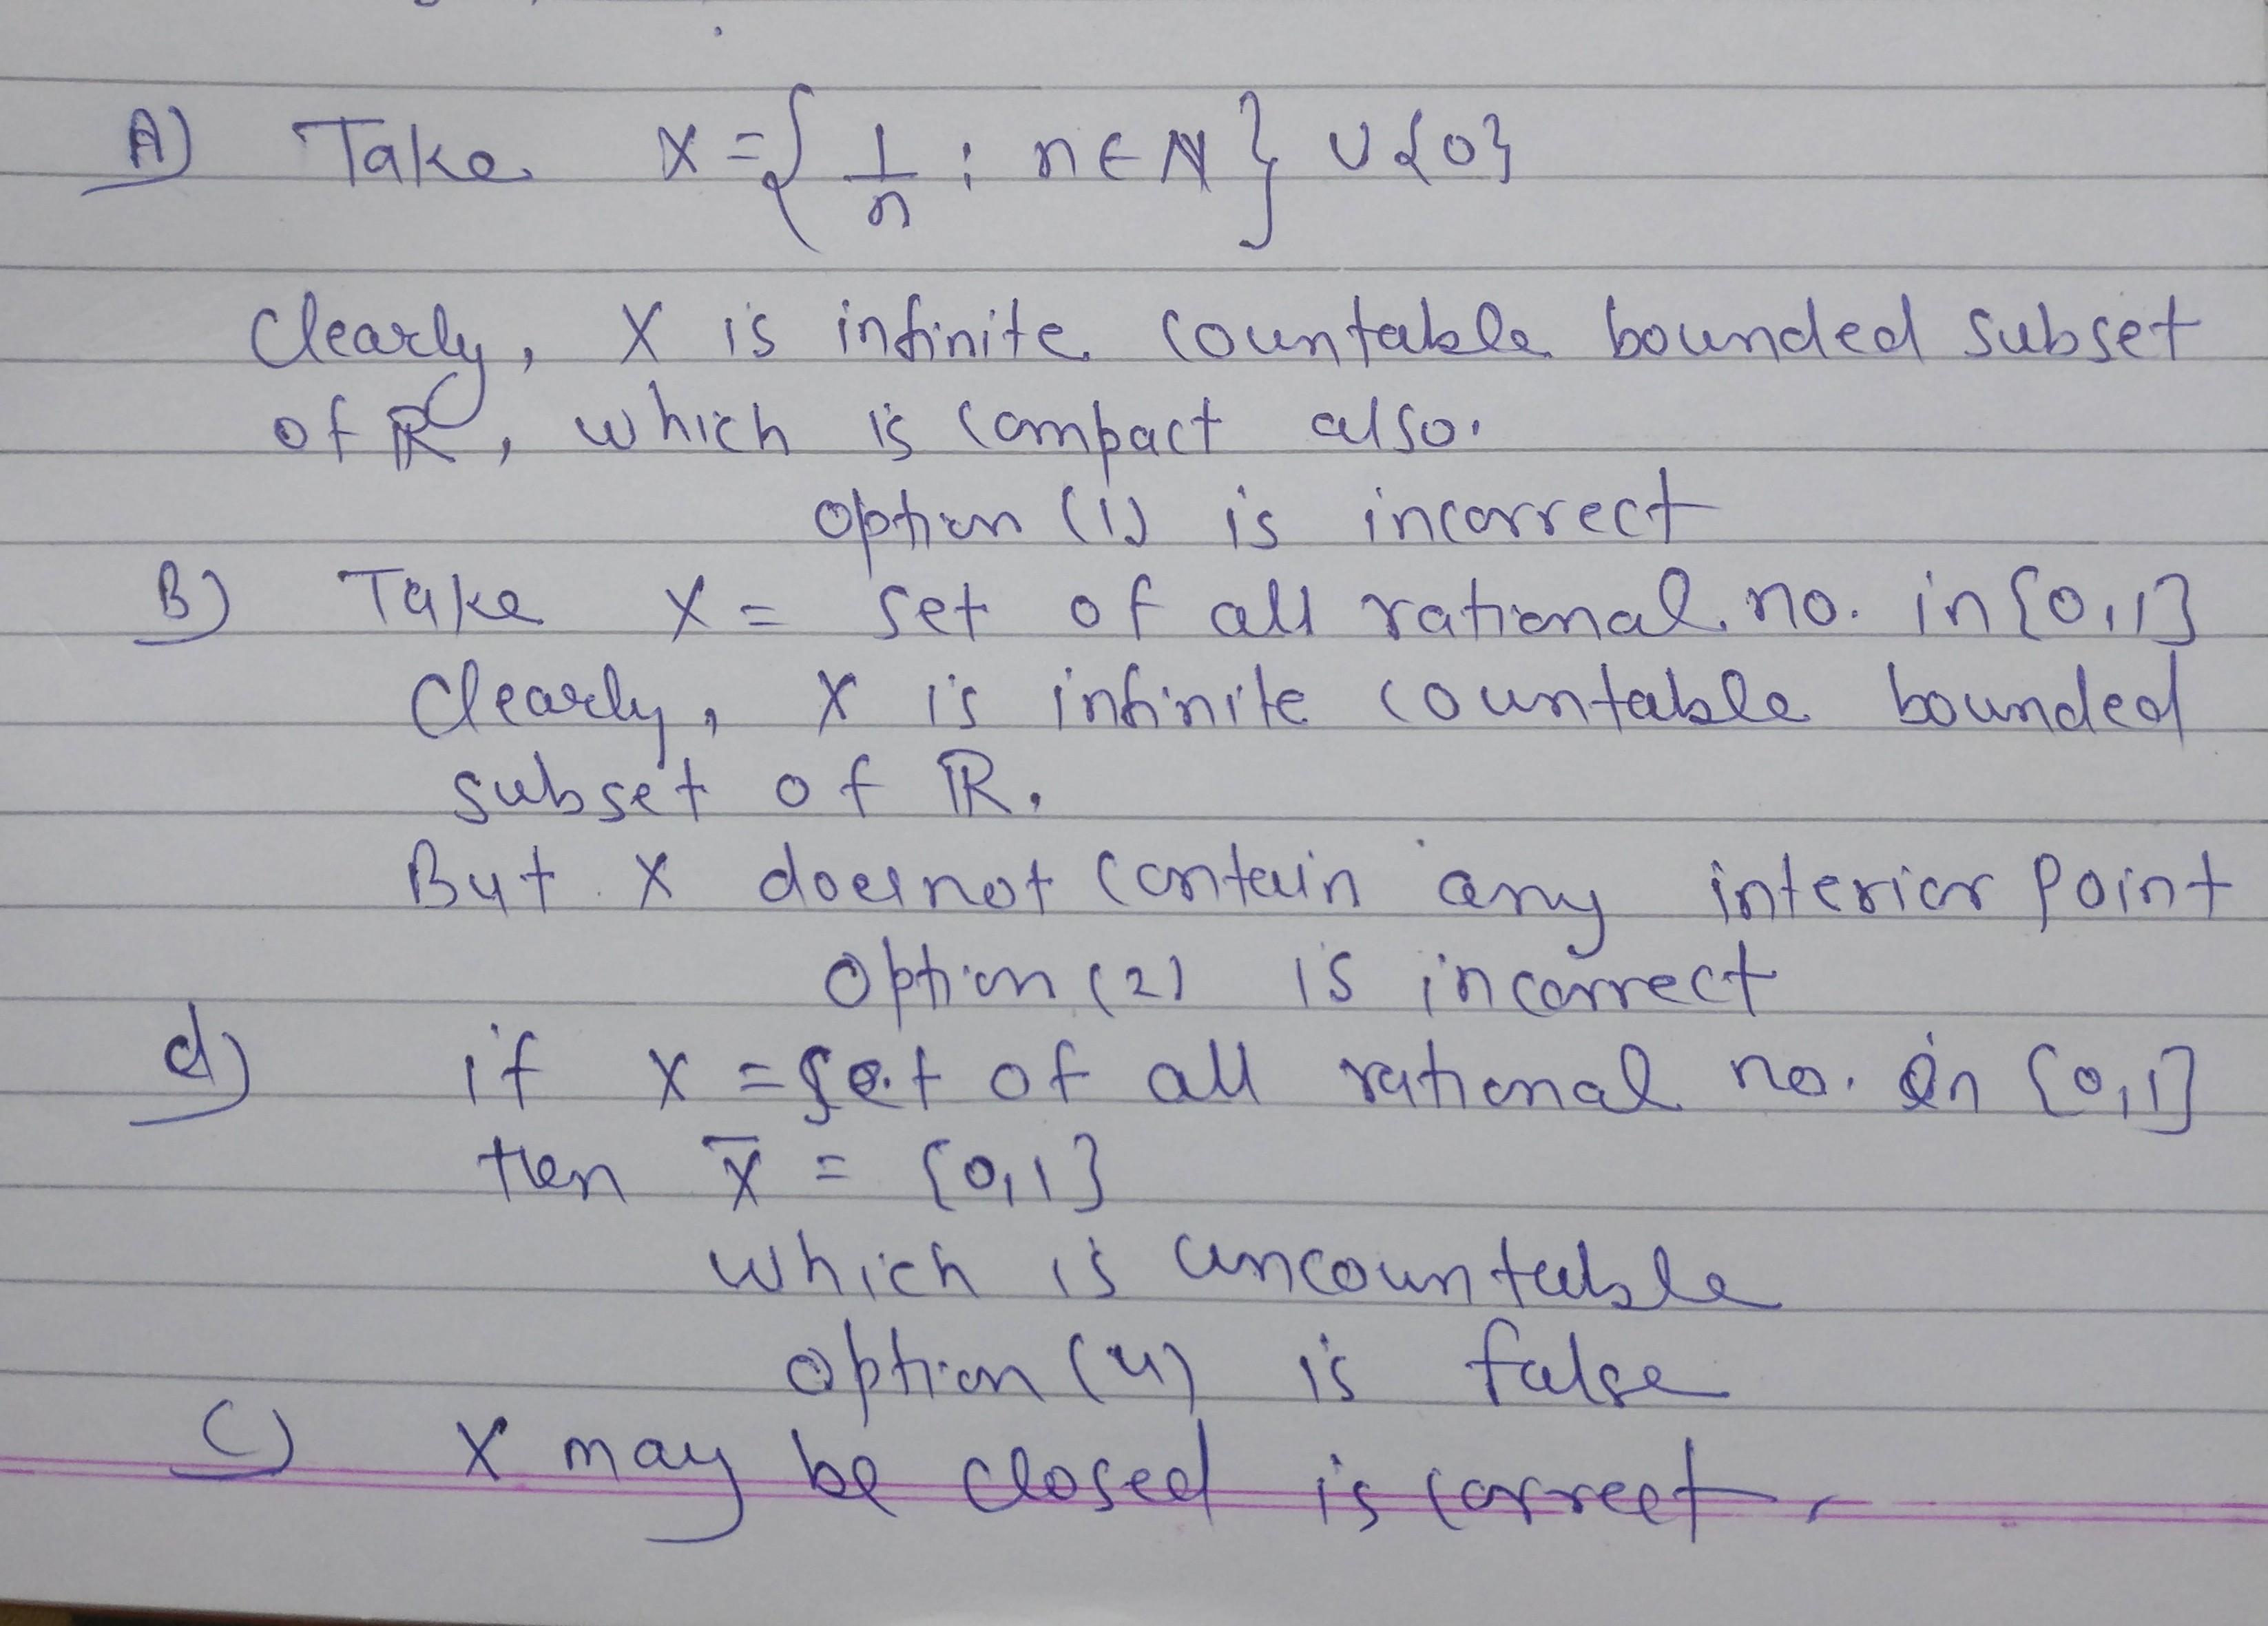 A) Take X = { 1/n ; n ∈ N } ∪ {0}
Clearly, X is infinite countable bounded subset
of R, which is compact also.
option (1) is incorrect
B) Take X = set of all rational no. in [0,1]
Clearly, X is infinite countable bounded
subset of R.
But X doesnot contain any interior point
option (2) is incorrect
d) if X = set of all rational no. in [0,1]
then X̄ = [0,1]
which is uncountable
option (4) is false
C) X may be closed is correct.